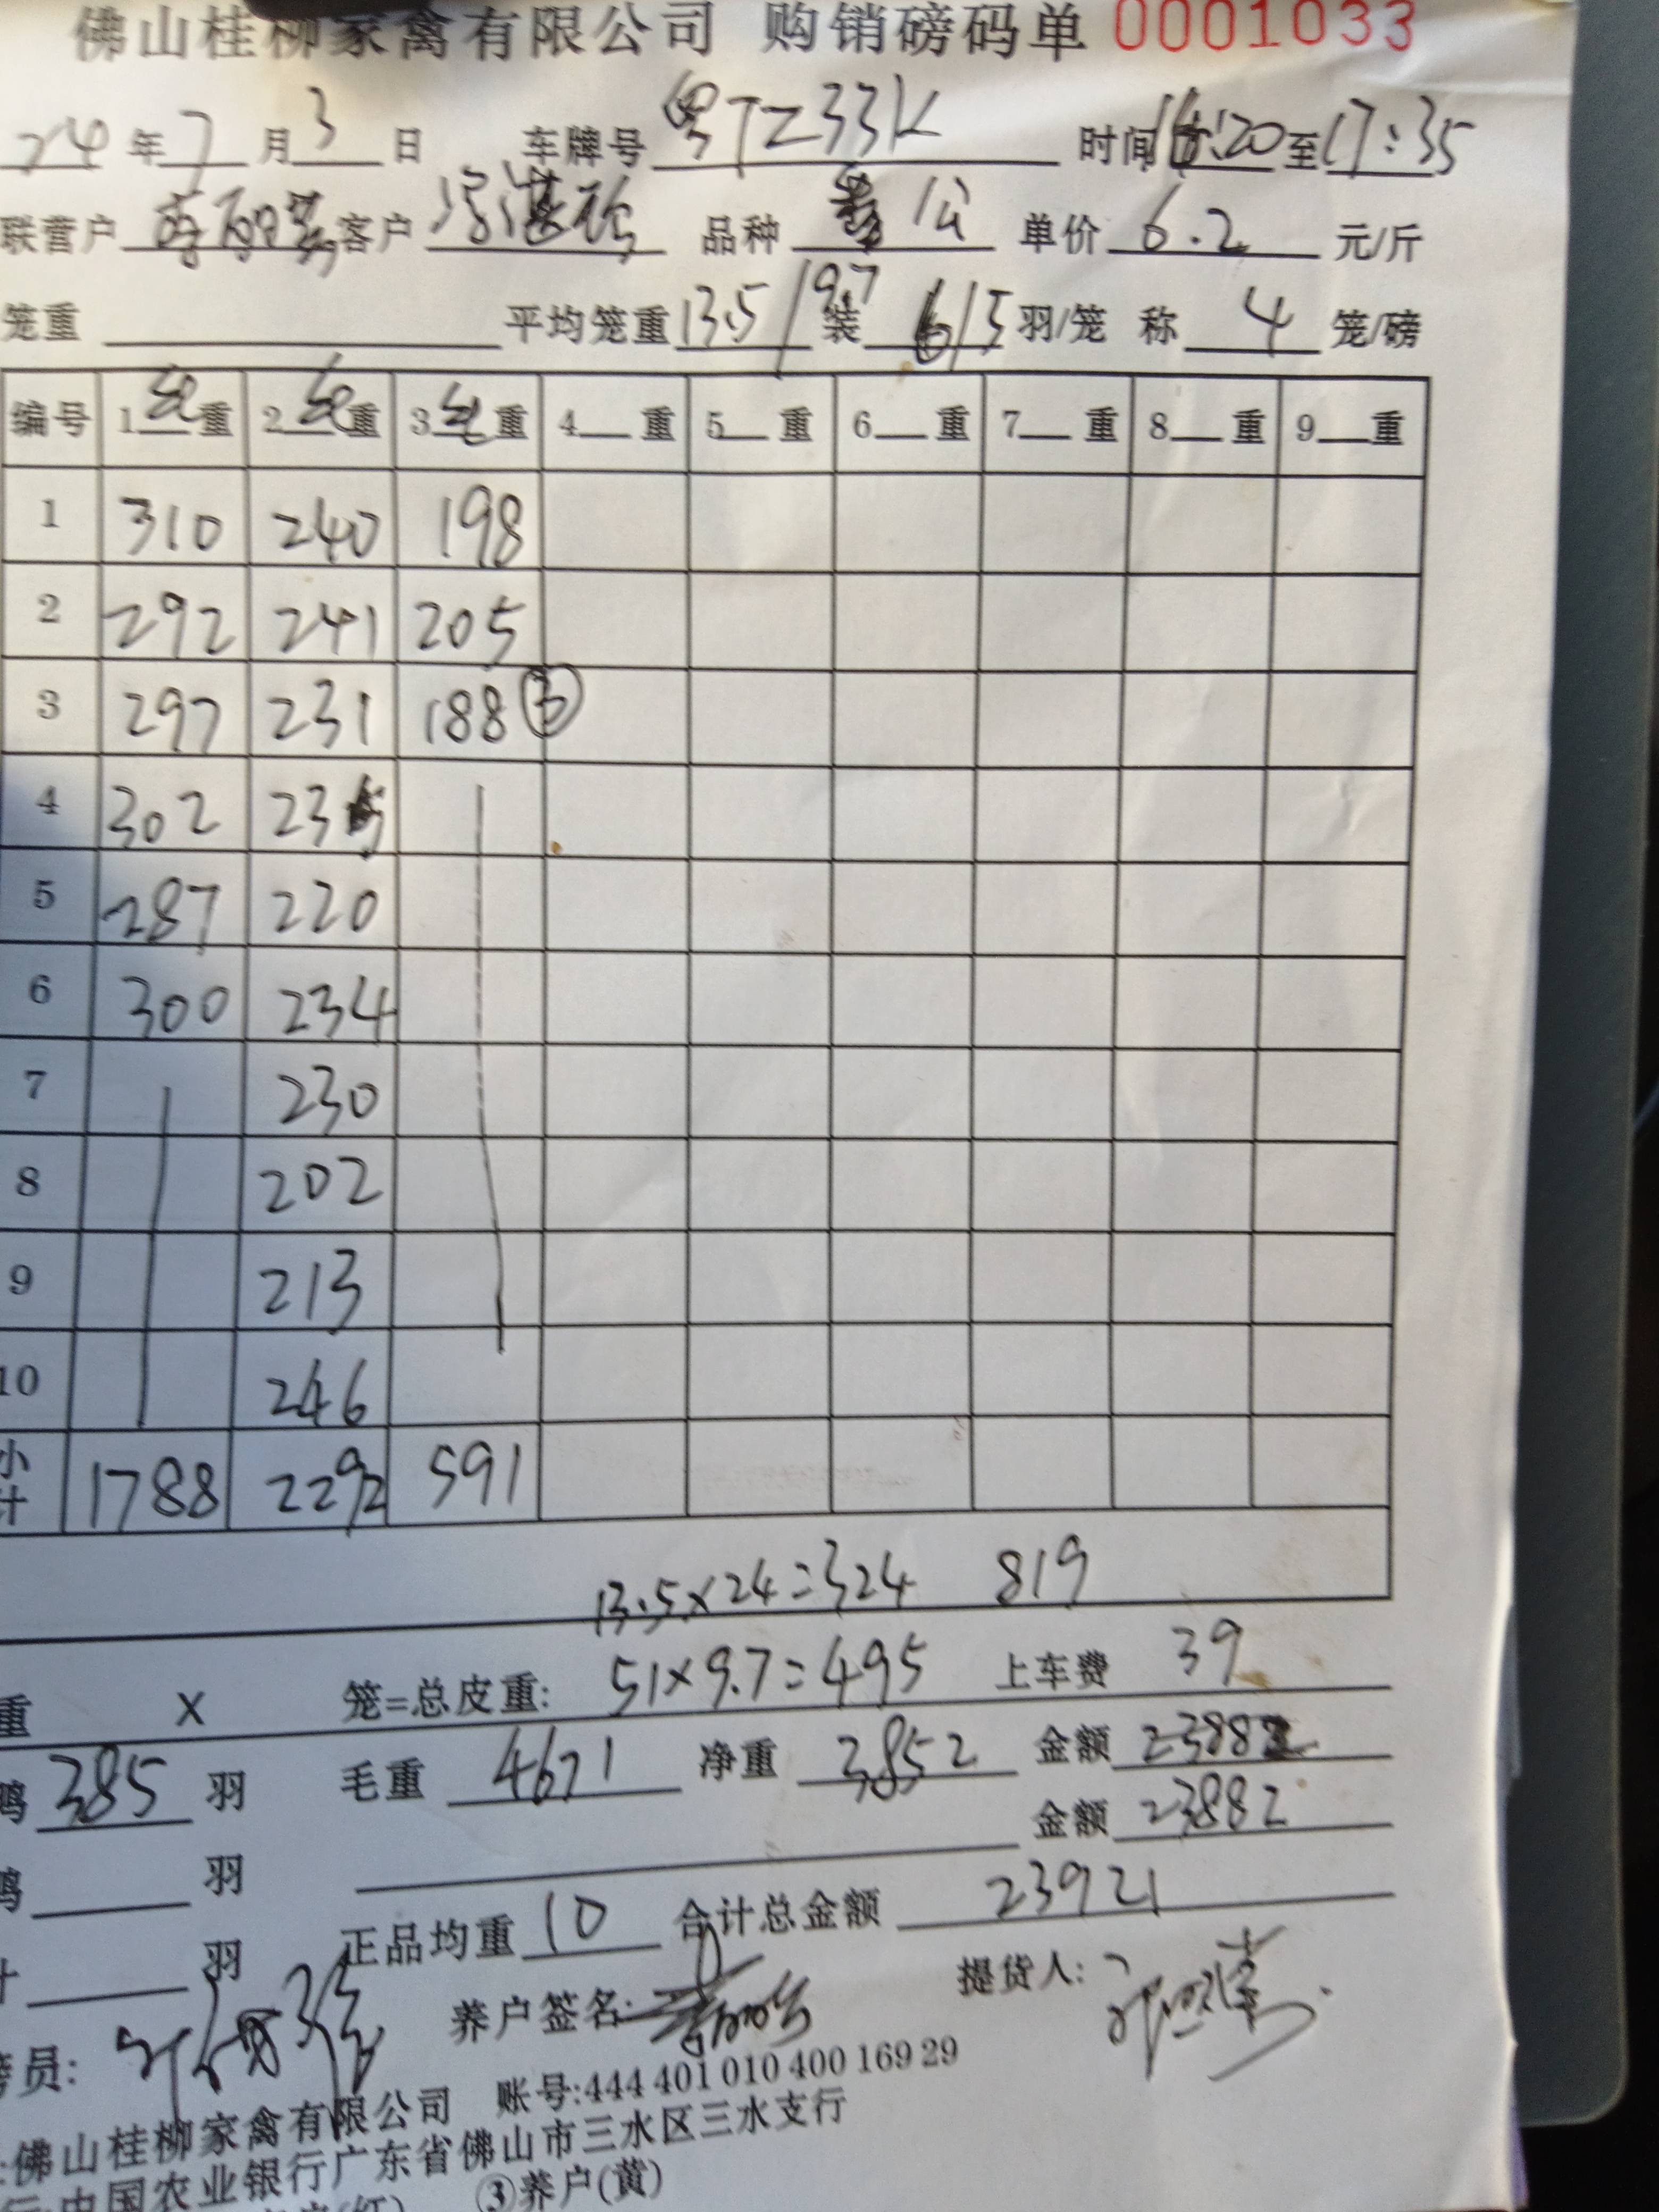 佛山桂柳家禽有限公司 购销磅码单 0001033
24 年 7 月 3 日 车牌号 粤TZ33K 时间 16:20 至 17:35
联营户 客户 品种 公 单价 6.2 元/斤
笼重 平均笼重 13.5/9.7 装 6/5 羽/笼 称 4 笼/磅
编号 1 红 重 2 红 重 3 红 重 4 重 5 重 6 重 7 重 8 重 9 重
1 310 240 198
2 292 241 205
3 297 231 188 ③
4 302 235
5 287 220
6 300 234
7 230
8 202
9 213
10 246
小计 1788 2292 591
13.5×24=324 819
重 X 笼=总皮重: 51×9.7=495 上车费 39
鸭 385 羽 毛重 4671 净重 3852 金额 23882
鸭 羽 金额 23882
计 羽 正品均重 10 合计总金额 23921
员: 养户签名: 提货人:
:佛山桂柳家禽有限公司 账号:444 401 010 400 169 29
行:中国农业银行广东省佛山市三水区三水支行
(红) ③养户(黄)